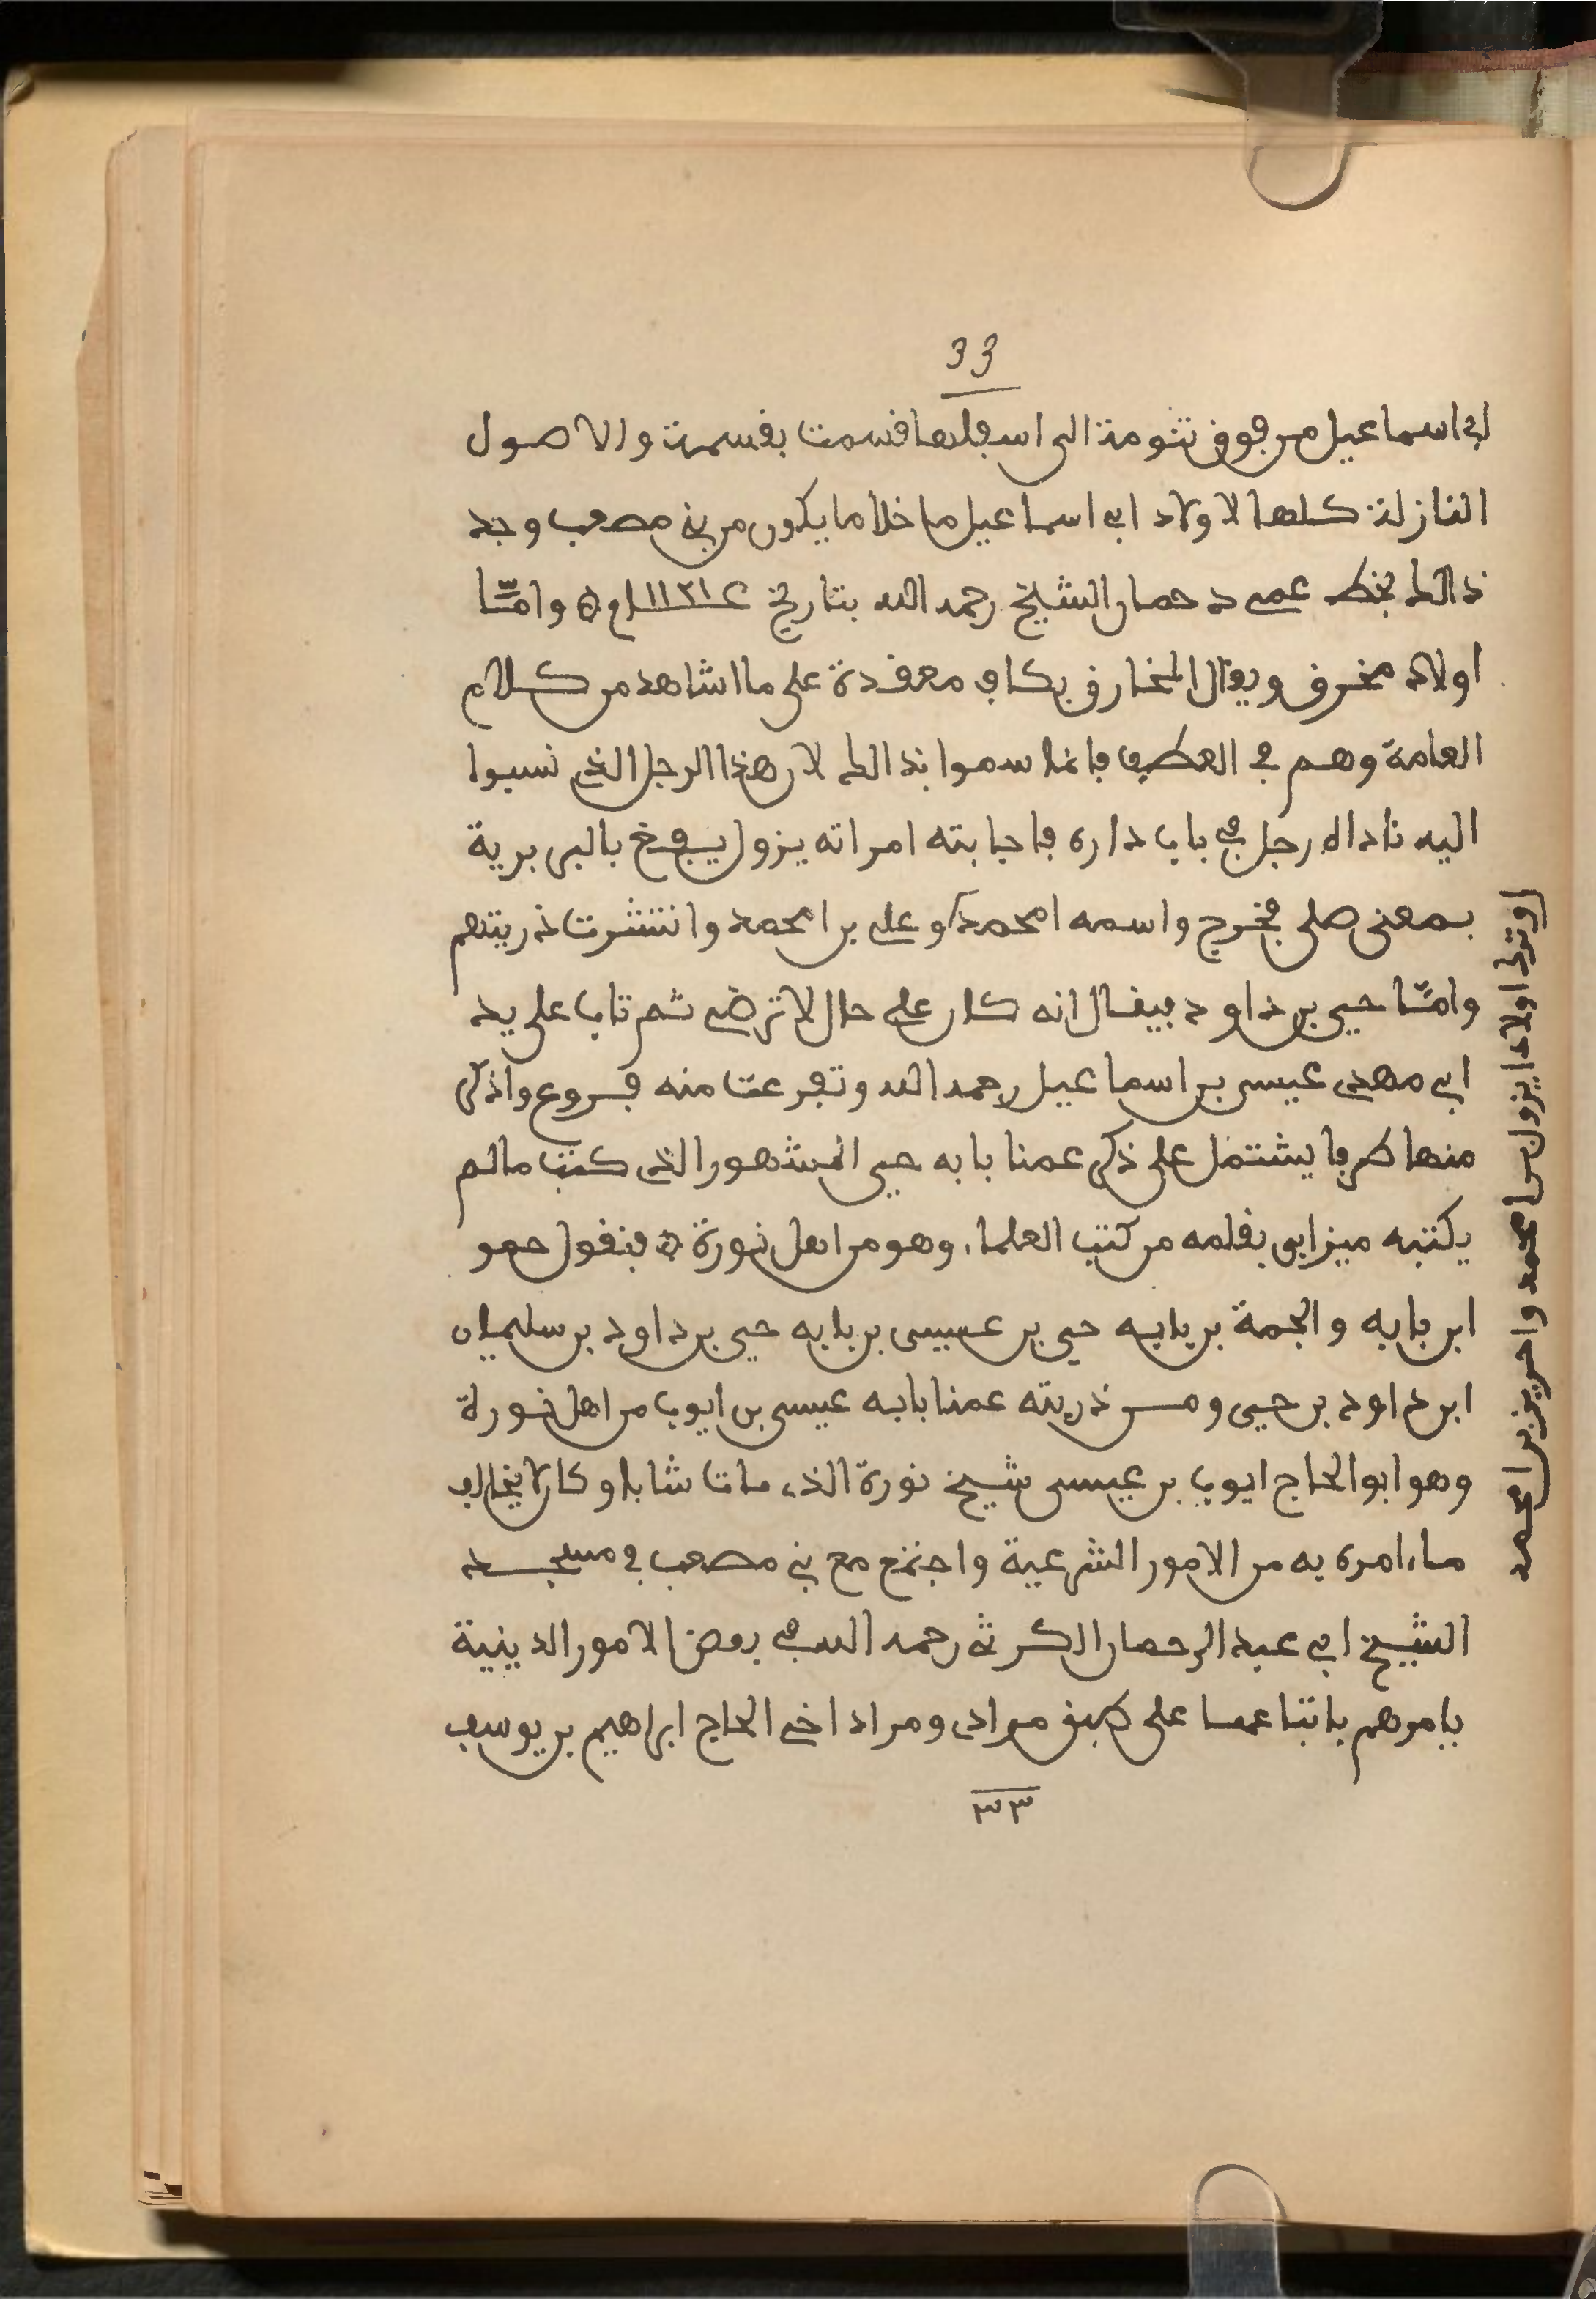 33
ابي اسماعيل من فوق تتومة الى اسفلها قسمت بقسمة والاصول
النازلة كلها لاولاد ابي اسماعيل ما خلا ما يكون من بني مصعب وجد
ذالك بخط عمي حمان الشيخ رحمه الله بتاريخ وامّا
اولاد مخرف ويقال المخارق بكاف معقدة على ما اشاهد من كلام
العامة وهم في العطف فانما سموا بذالك لان هذا الرجل الذي نسبوا
اليه ناداه رجل في باب داره فاجابته امراته يزول يفغ بالبربرية
بمعنى صلى فخرج واسمه امحمد او علي بن امحمد وانتشرت ذريتهم
وامّا حيى بن داود فيقال انه كان على حال لا ترضى ثم تاب على يد
ابي مهدي عيسى بن اسماعيل رحمه الله وتفرعت منه فروع واذكر
منها طرفا يشتمل على ذكر عمنا بابه حيى المشهور الذي كتب مالم
يكتبه ميزابي بقلمه من كتب العلماء وهو من اهل نورة فنقول هو
ابن بابه والجمة بن بابه حيى بن عيسى بن بابه حيى بن داود بن سليمان
ابن داود بن حيى ومن ذريته عمنا بابه عيسى بن ايوب من اهل نورة
وهو ابو الحاج ايوب بن عيسى شيخ نورة الذي مات شابا وكان لا يخالف
ما امره به من الامور الشرعية واجتمع مع بني مصعب في مسجد
الشيخ ابي عبد الرحمان الكرثي رحمه الله في بعض الامور الدينية
يامرهم باتباعها على وفق مرادي ومراد اخي الحاج ابراهيم بن يوسف
٣٣
اولاد ايزول بن امحمد واحريز بن امحمد